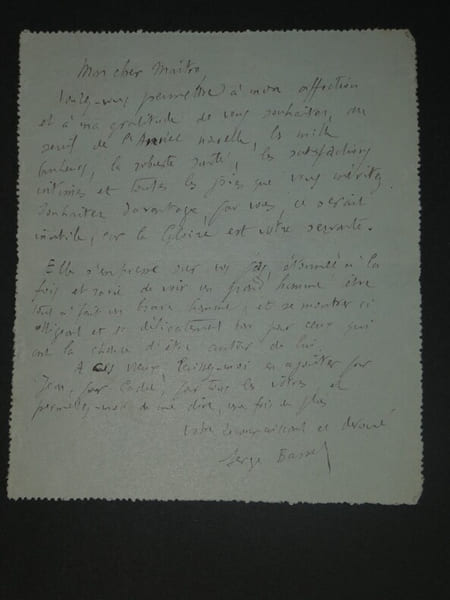 Mon cher Maître
Voulez-vous permettre à mon affection
et à ma gratitude de vous souhaiter, au
seuil de l'Année nouvelle, les mille
bonheurs, la robuste santé, les satisfactions
intimes et toutes les joies que vous méritez.
Souhaiter davantage, pour vous, ce serait
inutile, car la Gloire est votre servante.
Elle s'empresse sur vos pas, étonnée à la
fois et ravie de voir un grand homme être
tout à fait un brave homme, et se montrer si
obligeant et si délicatement bon pour ceux qui
ont la chance d'être autour de lui.
A ces vœux, laissez-moi en ajouter pour
Jean, pour, pour tous les vôtres, et
permettez-moi de me dire, une fois de plus
votre reconnaissant et dévoué
Serge Basset